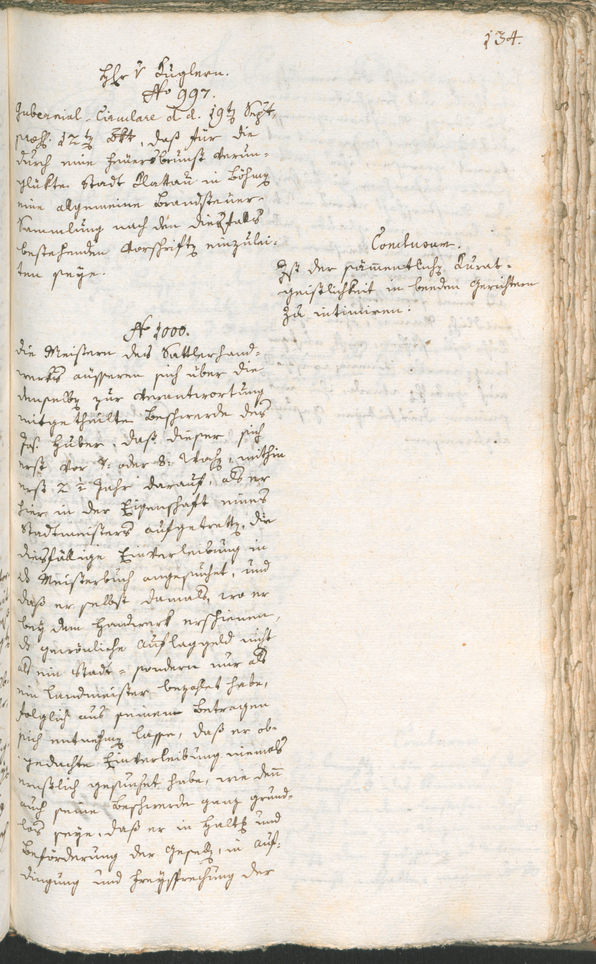 134.
Hr v Kuglern.
No 997.
Gubernial-Circulare d. d. 19t Sept.
praes: 12t 8br, daß für die
durch eine Feuersbrunst verun-
glükte Stadt Klattau in Böhmen
eine allgemeine Brandsteuer-
Sammlung nach den diesfalls
bestehenden Vorschriften einzulei-
ten seye.
Conclusum.
Ist der sämmentlichen Kurat-
geistlichkeit in beeden Gerichtern
zu intimiren.
No 1000.
die Meistern des Sattlerhand-
werks äusseren sich über die
denselben zur Verantwortung
mitgetheilte Beschwerde des
Jos: Huber, daß dieser sich
erst vor 7: oder 8: Wochen, mithin
erst 2 1/2 Jahr darauf, als er
hier in der Eigenschaft eines
Stadtmeisters aufgetretten, die
diesfällige Einverleibung in
ds Meisterbuch angesuchet, und
daß er selbst damals, wo er
bey dem Handwerk erschienen,
ds gewönliche Auflaggeld nicht
als ein Stadt- sondern nur als
ein Landmeister bezahlet habe,
folglich aus seinem Betragen
sich entnehmen lasse, daß er ob-
gedachte Einverleibung niemals
ernstlich gesuchet habe, wie denn
auch seine Beschwerde ganz grund-
los seye, daß er in Haltung und
Beförderung der Gesellen, in Auf-
dingung und Freysprechung der